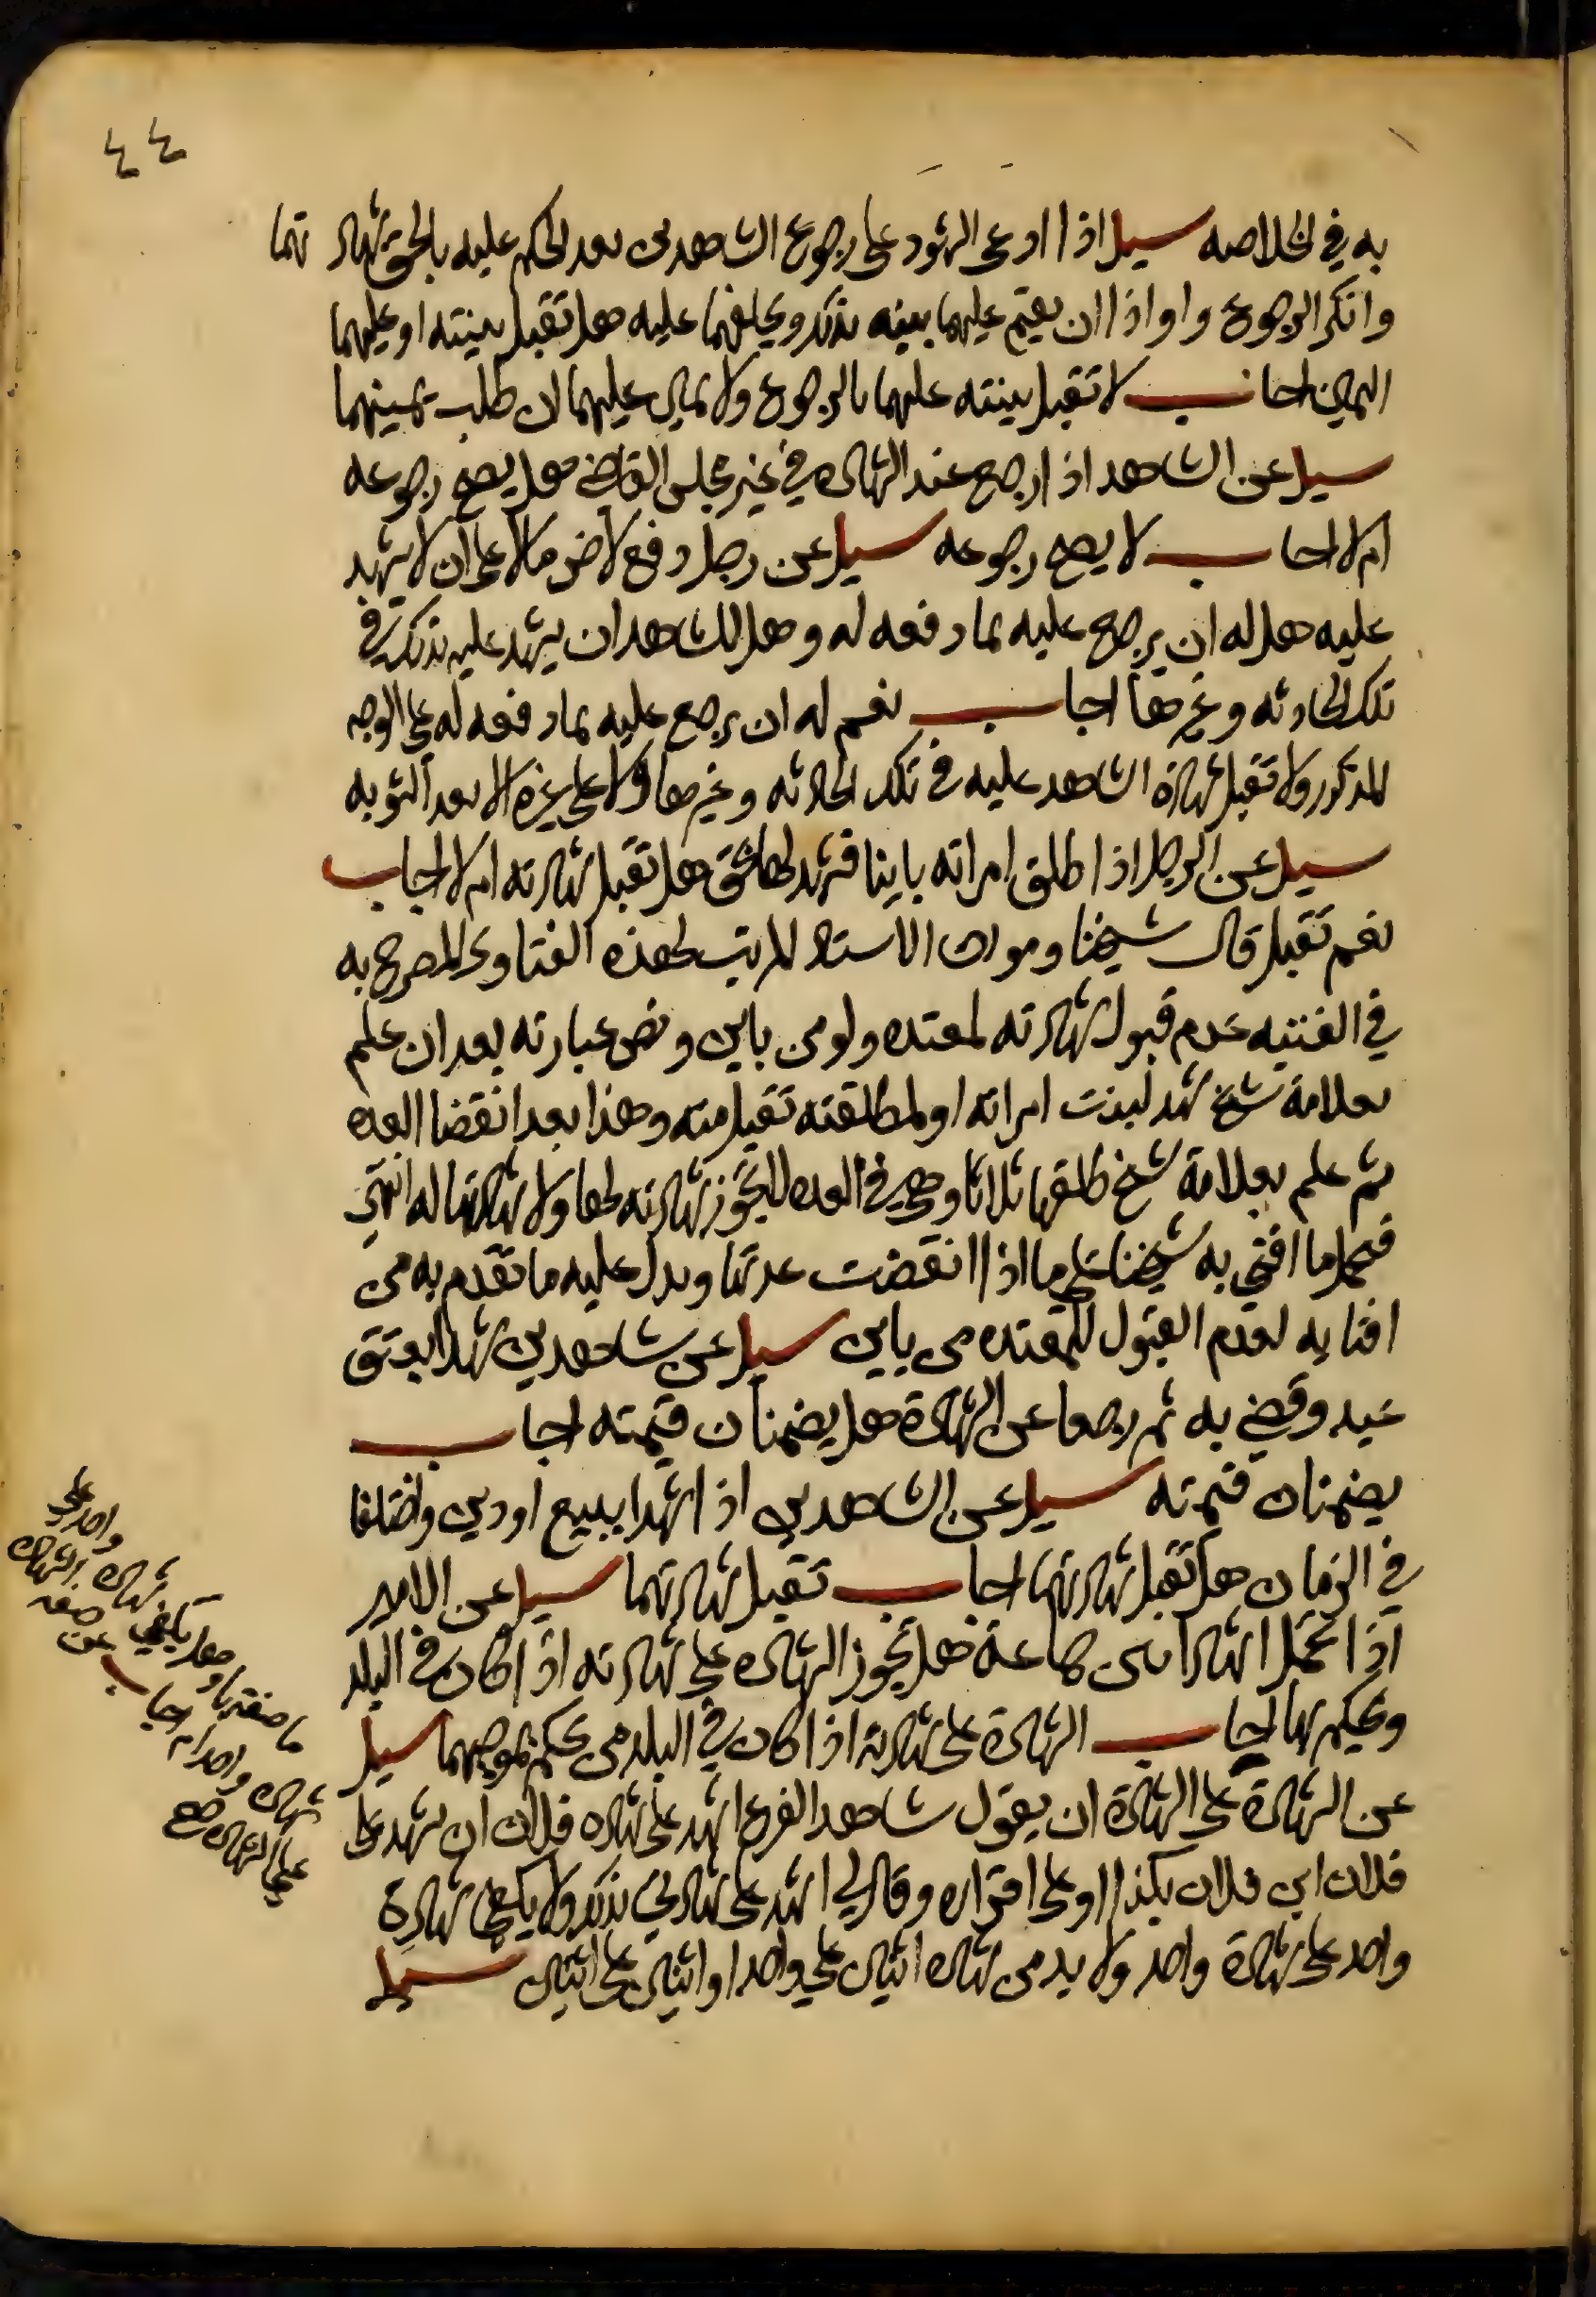 ٤٤
به في الخلاصه سيل اذا ادعى الشهود على رجوع الشاهدين بعد الحكم عليه بالحق بشهاد تهما
وانكر الرجوع واراد ان يقيم عليهما بينه بذلك ويحلفهما عليه هل تقبل بينته او عليهما
اليمين اجاب لا تقبل بينته عليهما بالرجوع ولا يمين عليهما ان طلب يمينهما
سيل عن الشاهد اذا رجع عند الشهاده في غير مجلس القاضي هل يصح رجوعه
ام لا اجاب لا يصح رجوعه سيل عن رجل دفع لاخر مالا على ان لا يشهد
عليه هل له ان يرجع عليه بما دفعه له وهل للشاهد ان يشهد عليه بذلك في
تلك الحادثه وغيرها اجاب نعم له ان يرجع عليه بما دفعه له على الوجه
المذكور ولا تقبل شهادة الشاهد عليه في تلك الحادثه وغيرها ولا على غيره الا بعد التوبه
سيل عن الرجل اذا طلق امراته باينا فشهد لها هل تقبل شهادته ام لا اجاب
نعم تقبل قال شيخنا ومولانا الاستاذ المرتب لهذه الفتاوى المصرح به
في القنيه عدم قبول شهادته لمعتده ولو من باين ونص عبارته بعد ان علم
بعلامة شخ شهد لبنت امراته او لمطلقته تقبل منه وهذا بعد انقضا العده
ثم علم بعلامة شخ طلقها ثلاثا وهي في العده لا تجوز شهادته لها ولا شهادتها له انتهى
فيحمل ما افتى به شيخنا على ما اذا انقضت عدتها ويدل عليه ما تقدم به من
افتايه لعدم القبول للمعتده من باين سيل عن شاهدين شهدا بعتق
عبد وقضي به ثم رجعا عن الشهادة هل يضمنان قيمته اجاب
يضمنان قيمته سيل عن الشاهدين اذا شهدا ببيع او دين واختلفا
في الزمان هل تقبل شهادتهما اجاب تقبل شهادتهما سيل عن الامير
اذا تحمل هل تجوز الشهاده على شهادته اذا كان في البلد
ويحكم بها اجاب الشهادة على شهادته اذا كان في البلد من يحكم بموجبهما سيل
عن الشهادة على الشهادة ان يقول شاهد الفرع اشهد على شهاده فلان ان يشهد على
فلان ابن فلان بكذا او على اقراره وقال لي اشهد على شهادتي بذلك ولا يكفي شهادة
واحد على شهادة واحد ولا بد من شهاده اثنين على واحد او اثنين على اثنين سيل
ما صفتها وهل يكفي شهاده واحد على
شهاده واحد ام اجاب عن صفة الشهاده
على الشهاده صح